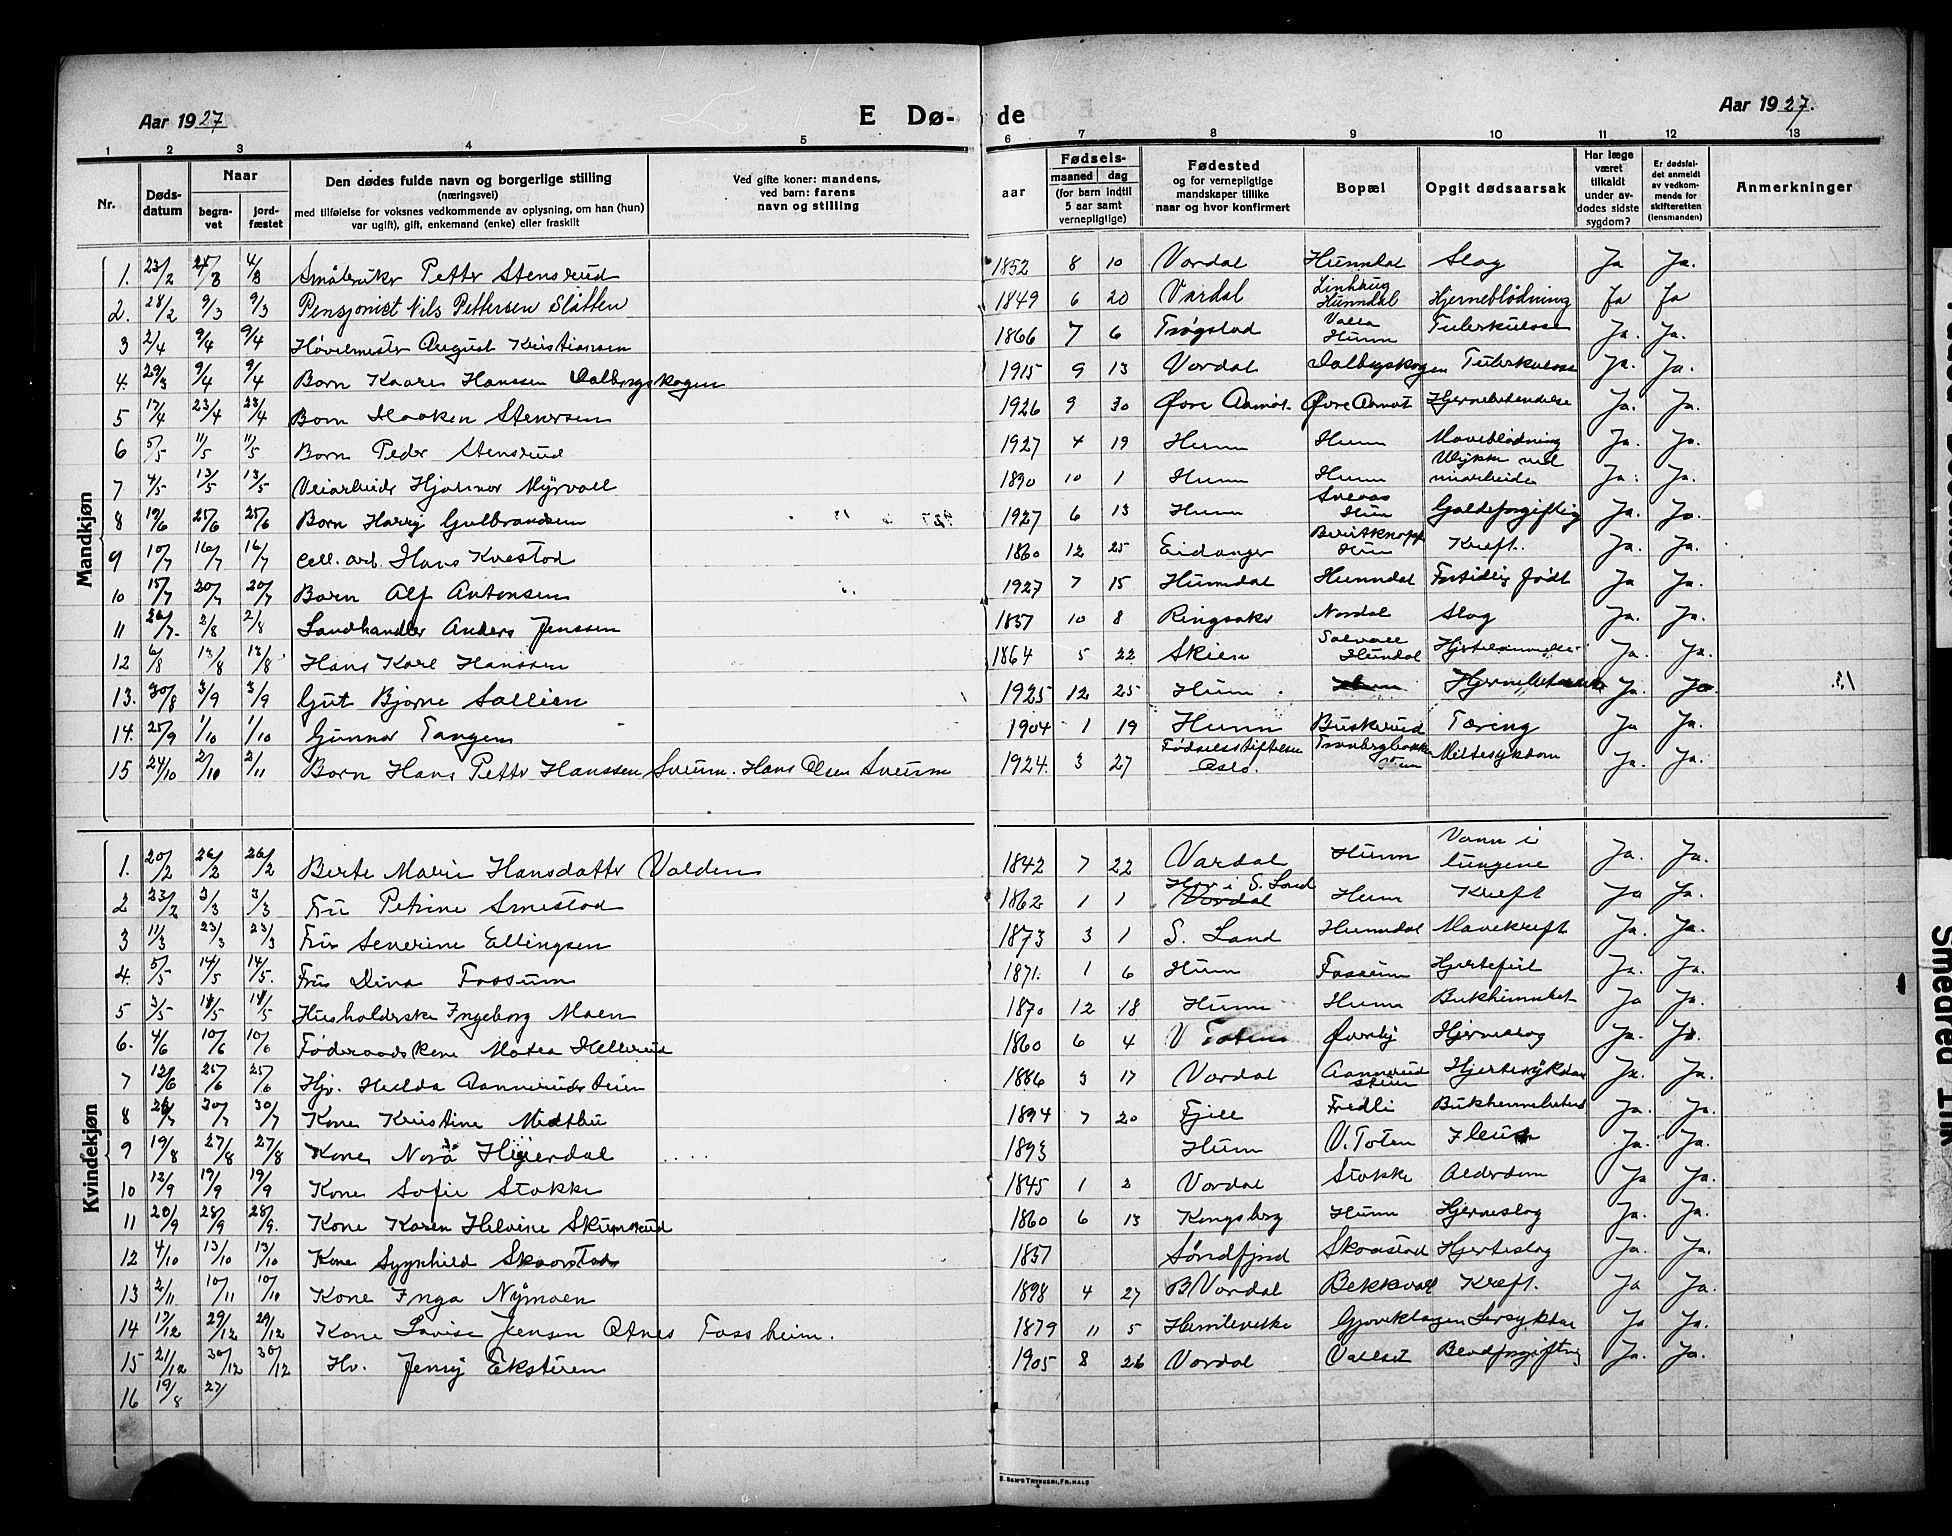 Aar 1927 E Dø- de Aar 1927.
1 2 3 4 5 6 7 8 9 10 11 12 13
Nr. Dødsdatum Naar begravet jordfæstet Den dødes fulde navn og borgerlige stilling (næringsvei) med tilføielse for voksnes vedkommende av oplysning, om han (hun) var ugift, gift, enkemand (enke) eller fraskilt Ved gifte koner: mandens, ved barn: farens navn og stilling aar Fødsels- maaned dag (for barn indtil 5 aar samt vernepligtige) Fødested og for vernepligtige mandskaper tillike naar og hvor konfirmert Bopæl Opgit dødsaarsak Har læge været tilkaldt under avdødes sidste sygdom? Er dødsfaldet anmeldt av vedkommende for skifteretten (lensmanden) Anmerkninger
Mandkjøn
1. 23/2 4/3 Småbruker Petter Stensrud 1852 8 10 Vardal Hunndal Slag Ja Ja.
2. 28/2 9/3 9/3 Pensjonist Nils Pettersen Slåtten 1849 6 20 Vardal Hunndal Hjerneblødning Ja Ja
3 2/4 9/4 9/4 Høvelmester August Kristiansen 1866 7 6 Trøgstad Hunn Tuberkulose Ja. Ja.
4. 29/3 9/4 9/4 Barn Kaare Hanssen Dalborgskogen 1915 9 13 Vardal Dalborgskogen Tuberkulose Ja. Ja.
5 17/4 23/4 23/4 Barn Haaken Stenersen 1926 9 30 Øvre Aamot Øvre Aamot Hjernebetendelse Ja. Ja.
6 5/5 11/5 11/5 Barn Peder Stensrud 1927 4 19 Hunn Hunn Maveblødning Ja. Ja.
7 4/5 13/5 13/5 Veiarbeider Hjalmar Myrvoll 1890 10 1 Hunn Hunn Ulykke ved Ja. Ja.
8 19/6 25/6 25/6 Barn Harry Gulbrandsen 1927 6 13 Hunn Hun Galdeforgiftning Ja. Ja.
9 10/7 16/7 16/7 Cell. arb. Hans Kvestad 1860 12 25 Eidanger Hun Kreft. Ja. Ja.
10 15/7 20/7 20/7 Barn Alf Antonsen 1927 7 15 Hunndal Hunndal Fortidlig født Ja Ja.
11 26/7. 2/8 2/8 Landhandler Anders Jenssen 1857 10 8 Ringsaker Nordal Slag Ja. Ja.
12 6/8 13/8 13/8 Hans Karl Hanssen 1864 5 22 Skien Hundal Ja. Ja.
13. 30/8 3/9 3/9 Gut Bjarne Sollien 1925 12 25 Hunn Hjernebetendelse Ja. Ja. 13.
14. 25/9 1/10 1/10 Gunnar Tangen 1904 1 19 Hunn Buskerud Tæring Ja Ja.
15 24/10 2/10 2/11 Barn Hans Petter Hanssen Sveum. Hans Olsen Sveum 1924. 3 27 Fødselsstiftelsen Oslo. Tranbergbakken Hun Miltesykdom Ja. Ja.
Kvindekjøn
1. 20/2 26/2 26/2 Berte Marie Hansdatter Valden 1842 7 22 Vardal Hunn Vann i lungene Ja. Ja.
2 23/2 3/3 3/3 Fru Petrine Smestad 1862 1 1 Vardal S. Land Hunn Kreft Ja Ja.
3 11/3 23/3 23/3 Fru Severine Ellingsen 1873 3 1 S. Land Hunndal Mavekreft Ja. Ja.
4. 5/5 14/5 14/5. Fru Dina Fossum 1871. 1 6 Hunn Fossum Hjertefeil Ja. Ja.
5 3/5 14/5 14/5 Husholderske Ingeborg Moen 1870 12 18 Hunn Hunn Bukhinnebet Ja Ja.
6. 4/6 10/6 10/6 Føderaadskone Matea Hellerud 1860 6 4 V Toten Øverby Hjerneslag Ja. Ja.
7 12/6 25/6 25/6 Hjv. Hulda Aannerudsteien 1886 3 17 Vardal Hjertesykdom Ja. Ja.
8 26/7 30/7 30/7 Kone Kristine Midtbu 1894 7 20 Fjell Fredli Ja. Ja.
9 19/8 27/8 27/8 Kone Nora Heyerdal 1893 Hunn V. Toten Ja. Ja.
10 12/9 19/9 19/9 Kone Sofie Stokke 1845 1 2 Vardal Stokke Alderdom Ja Ja
11 20/9 28/9 28/9. Kone Karen Helvine Skumsrud 1860 6 13 Kongsberg Hunn Hjerneslag Ja. Ja.
12 4/10 13/10 13/10 Kone Synnhild Skaarstad 1857 Søndfjord Skaarstad Hjerteslag Ja. Ja.
13 2/11 10/11 10/10 Kone Inga Nymoen 1898 4 27 B Vardal Bekkvoll Kreft. Ja Ja.
14 13/12 29/12 29/12 Kone Lovise Jensen Otnes Fossheim. 1879 11 5 Gjøviklagen Ja Ja.
15 21/12 30/12 30/12 Hv. Jenny Eksteren 1905 8 26 Vardal Vallset Blodforgiftning Ja. Ja.
16 19/8 27/